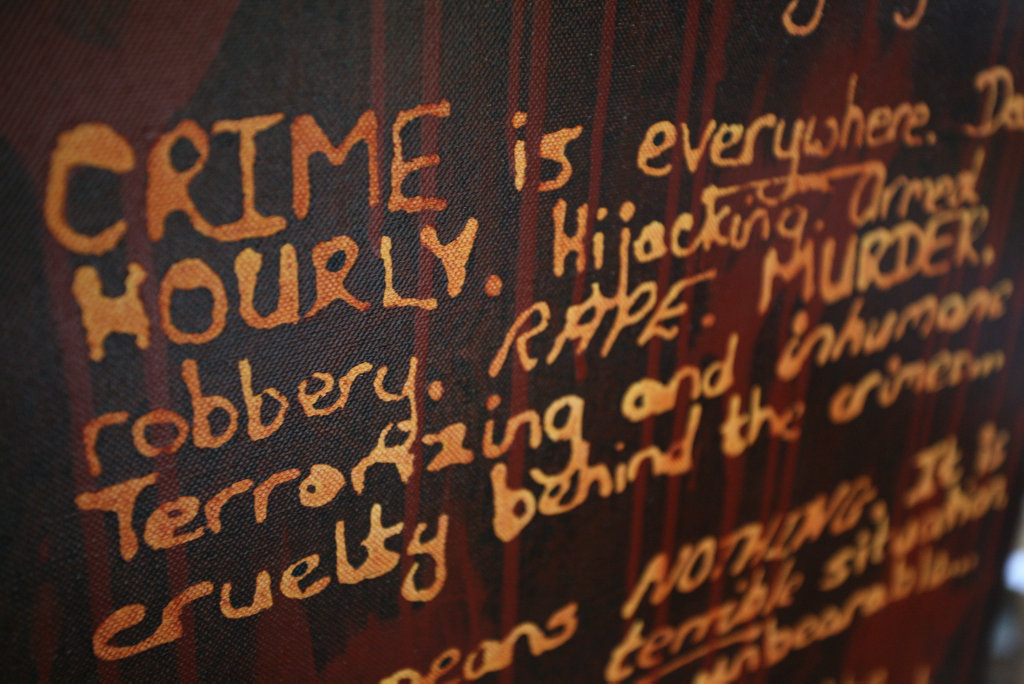 CRIME is everywhere.
HOURLY. Hijacking. Armed
robbery. RAPE. MURDER.
Terrorazing and inhumane
cruelty behind the crimes...
means NOTHING. It is
terrible situation
unbearable...